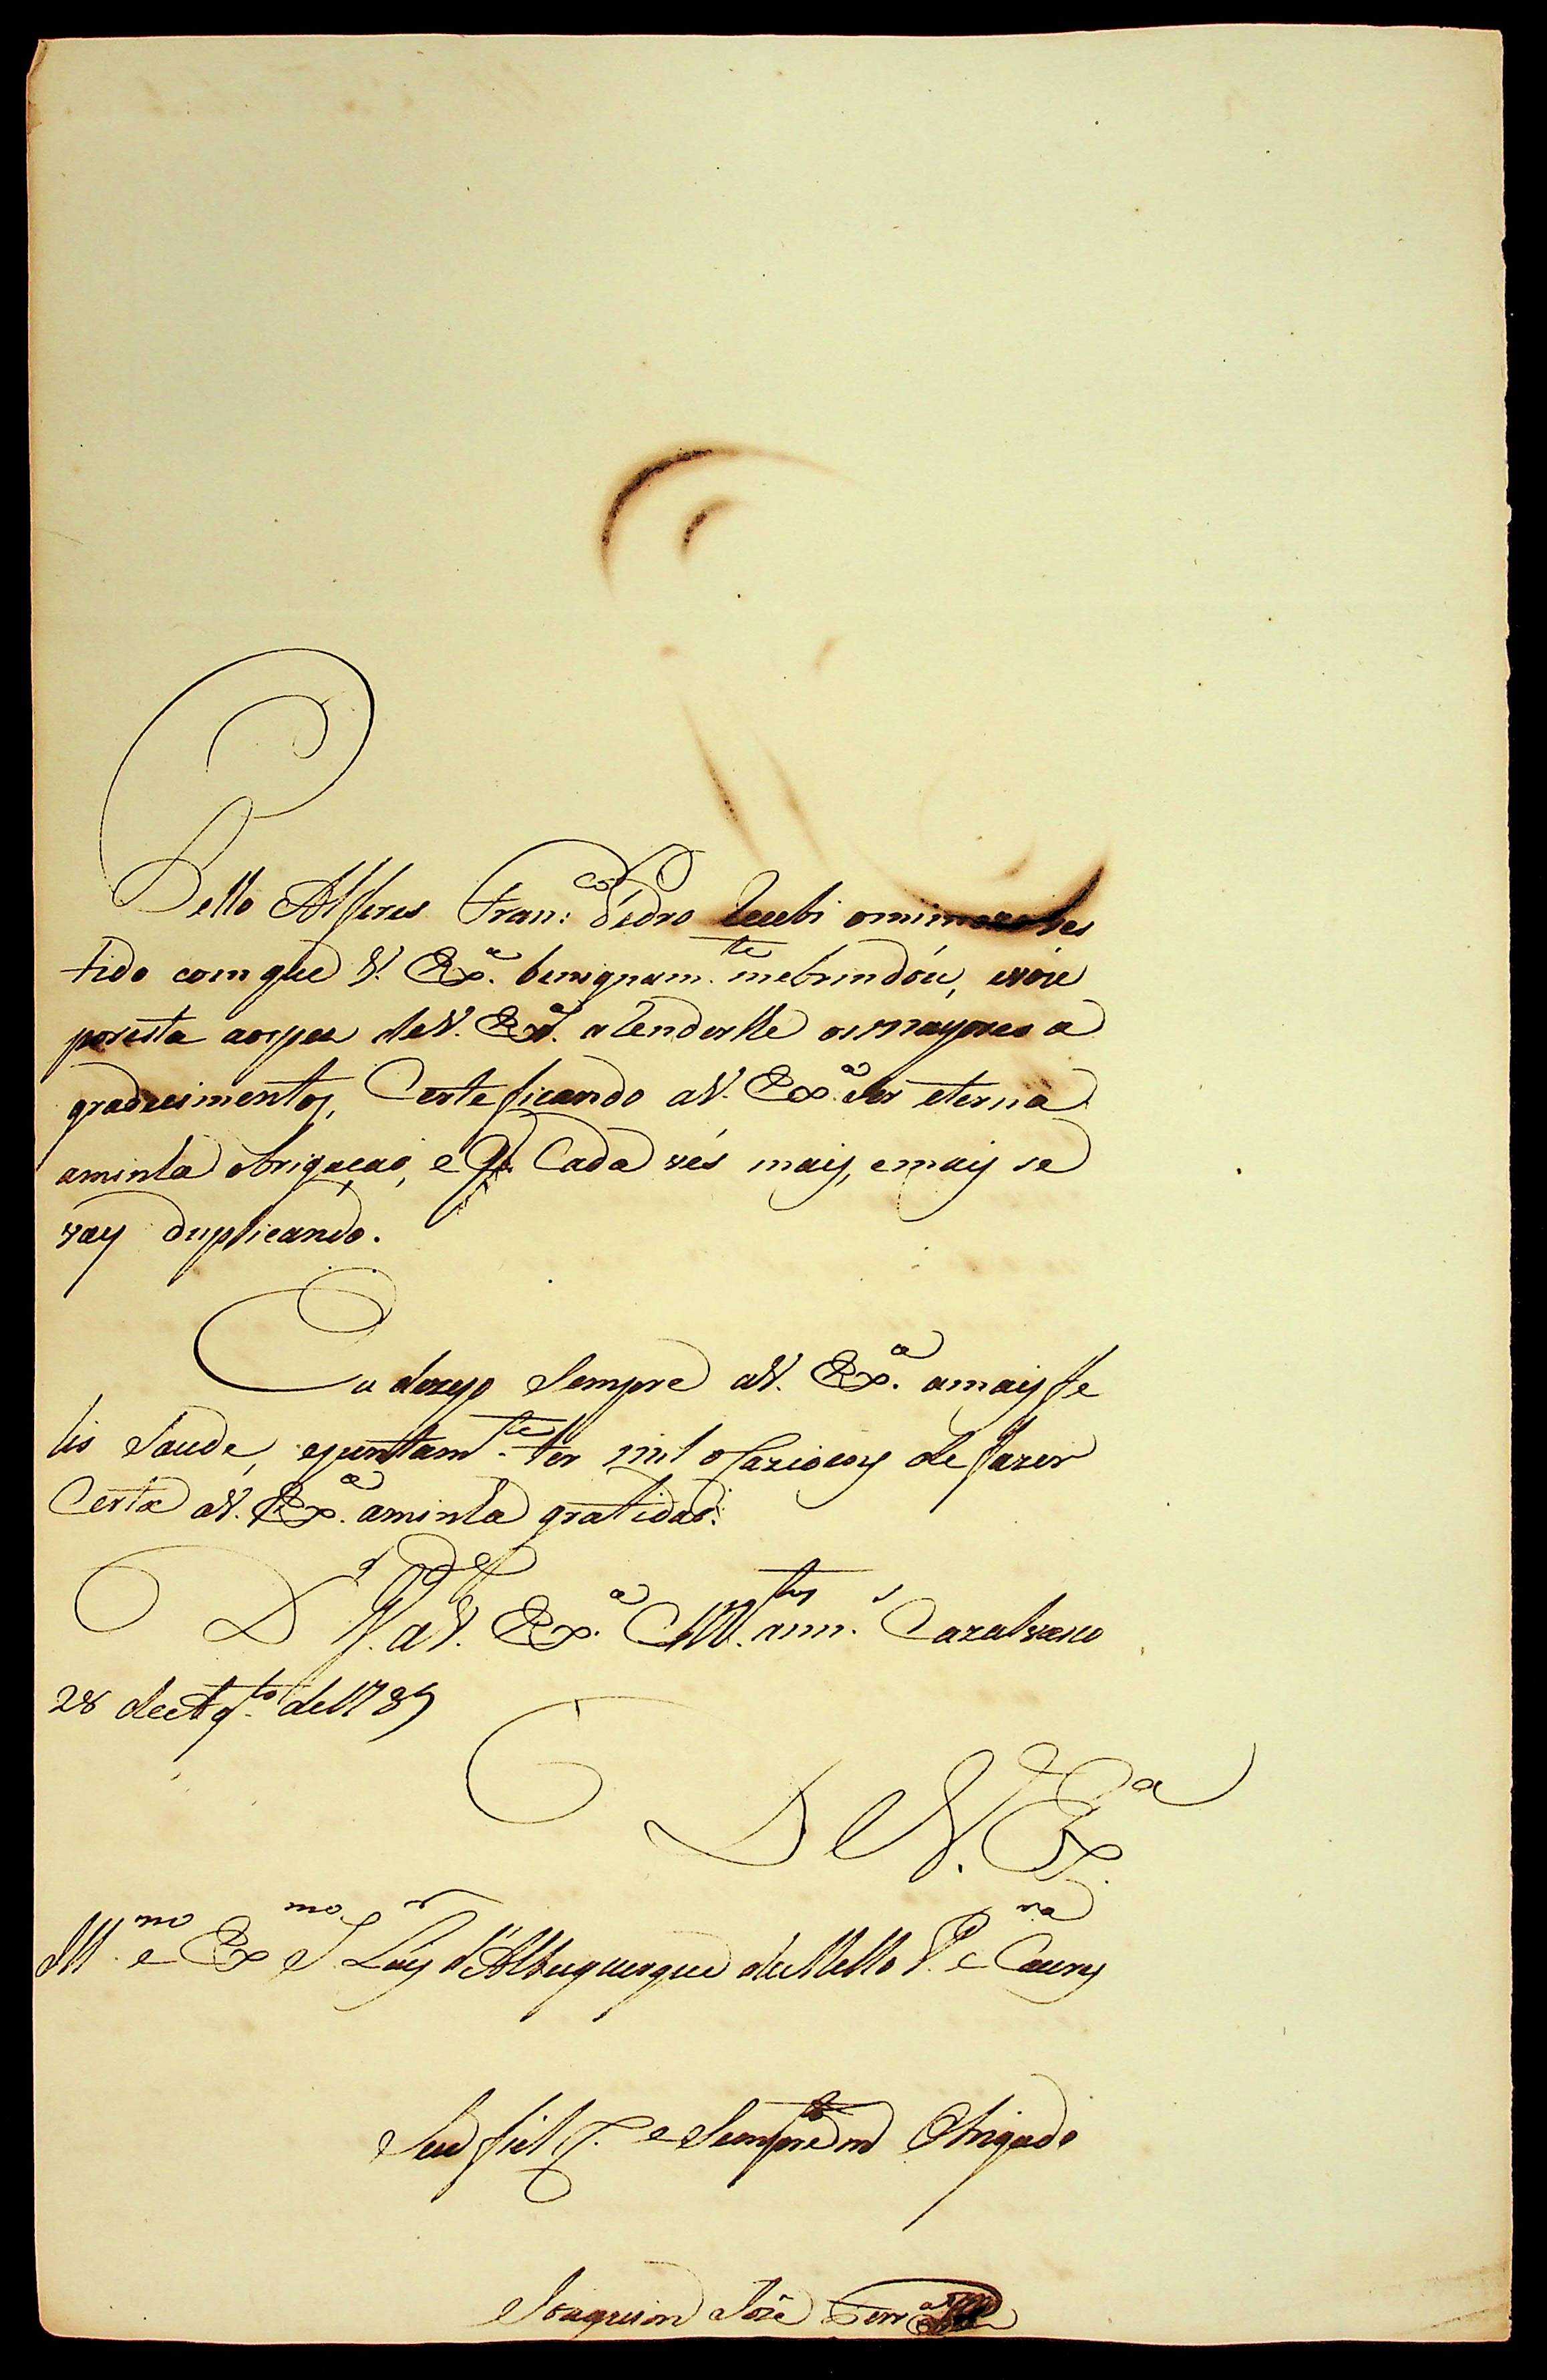 Pello Alferes Fran:co Pedro Recebi omimozo ves
tido com que V. Exa. benignam.te mebrindóu, evóu
poresta aospes deV. Exa. aRenderlhe osmayores a
gradecimentos, Certeficando aV. Exa. ser eterna
aminha obrigaçaõ, e q. Cada vés mais, emais se
vay duplicando.
Eu dezejo Sempre aV. Exa. amais fe
lis Saude, ejuntam.te ter mil ocazioens defazer
Certa aV. Exa. aminha gratidaõ.
Ds. G.de aV. Exa. M.tos ann.s Cazalvasco
28 deAg.to de1789
DeV. Exa.
Ill.mo e Ex.mo Sr. Luis d'Albuquerque deMello P.ra e Caceres
Seu fiel C. e Sempre m.to Obrigado
Joaquim Jozé Ferr.a